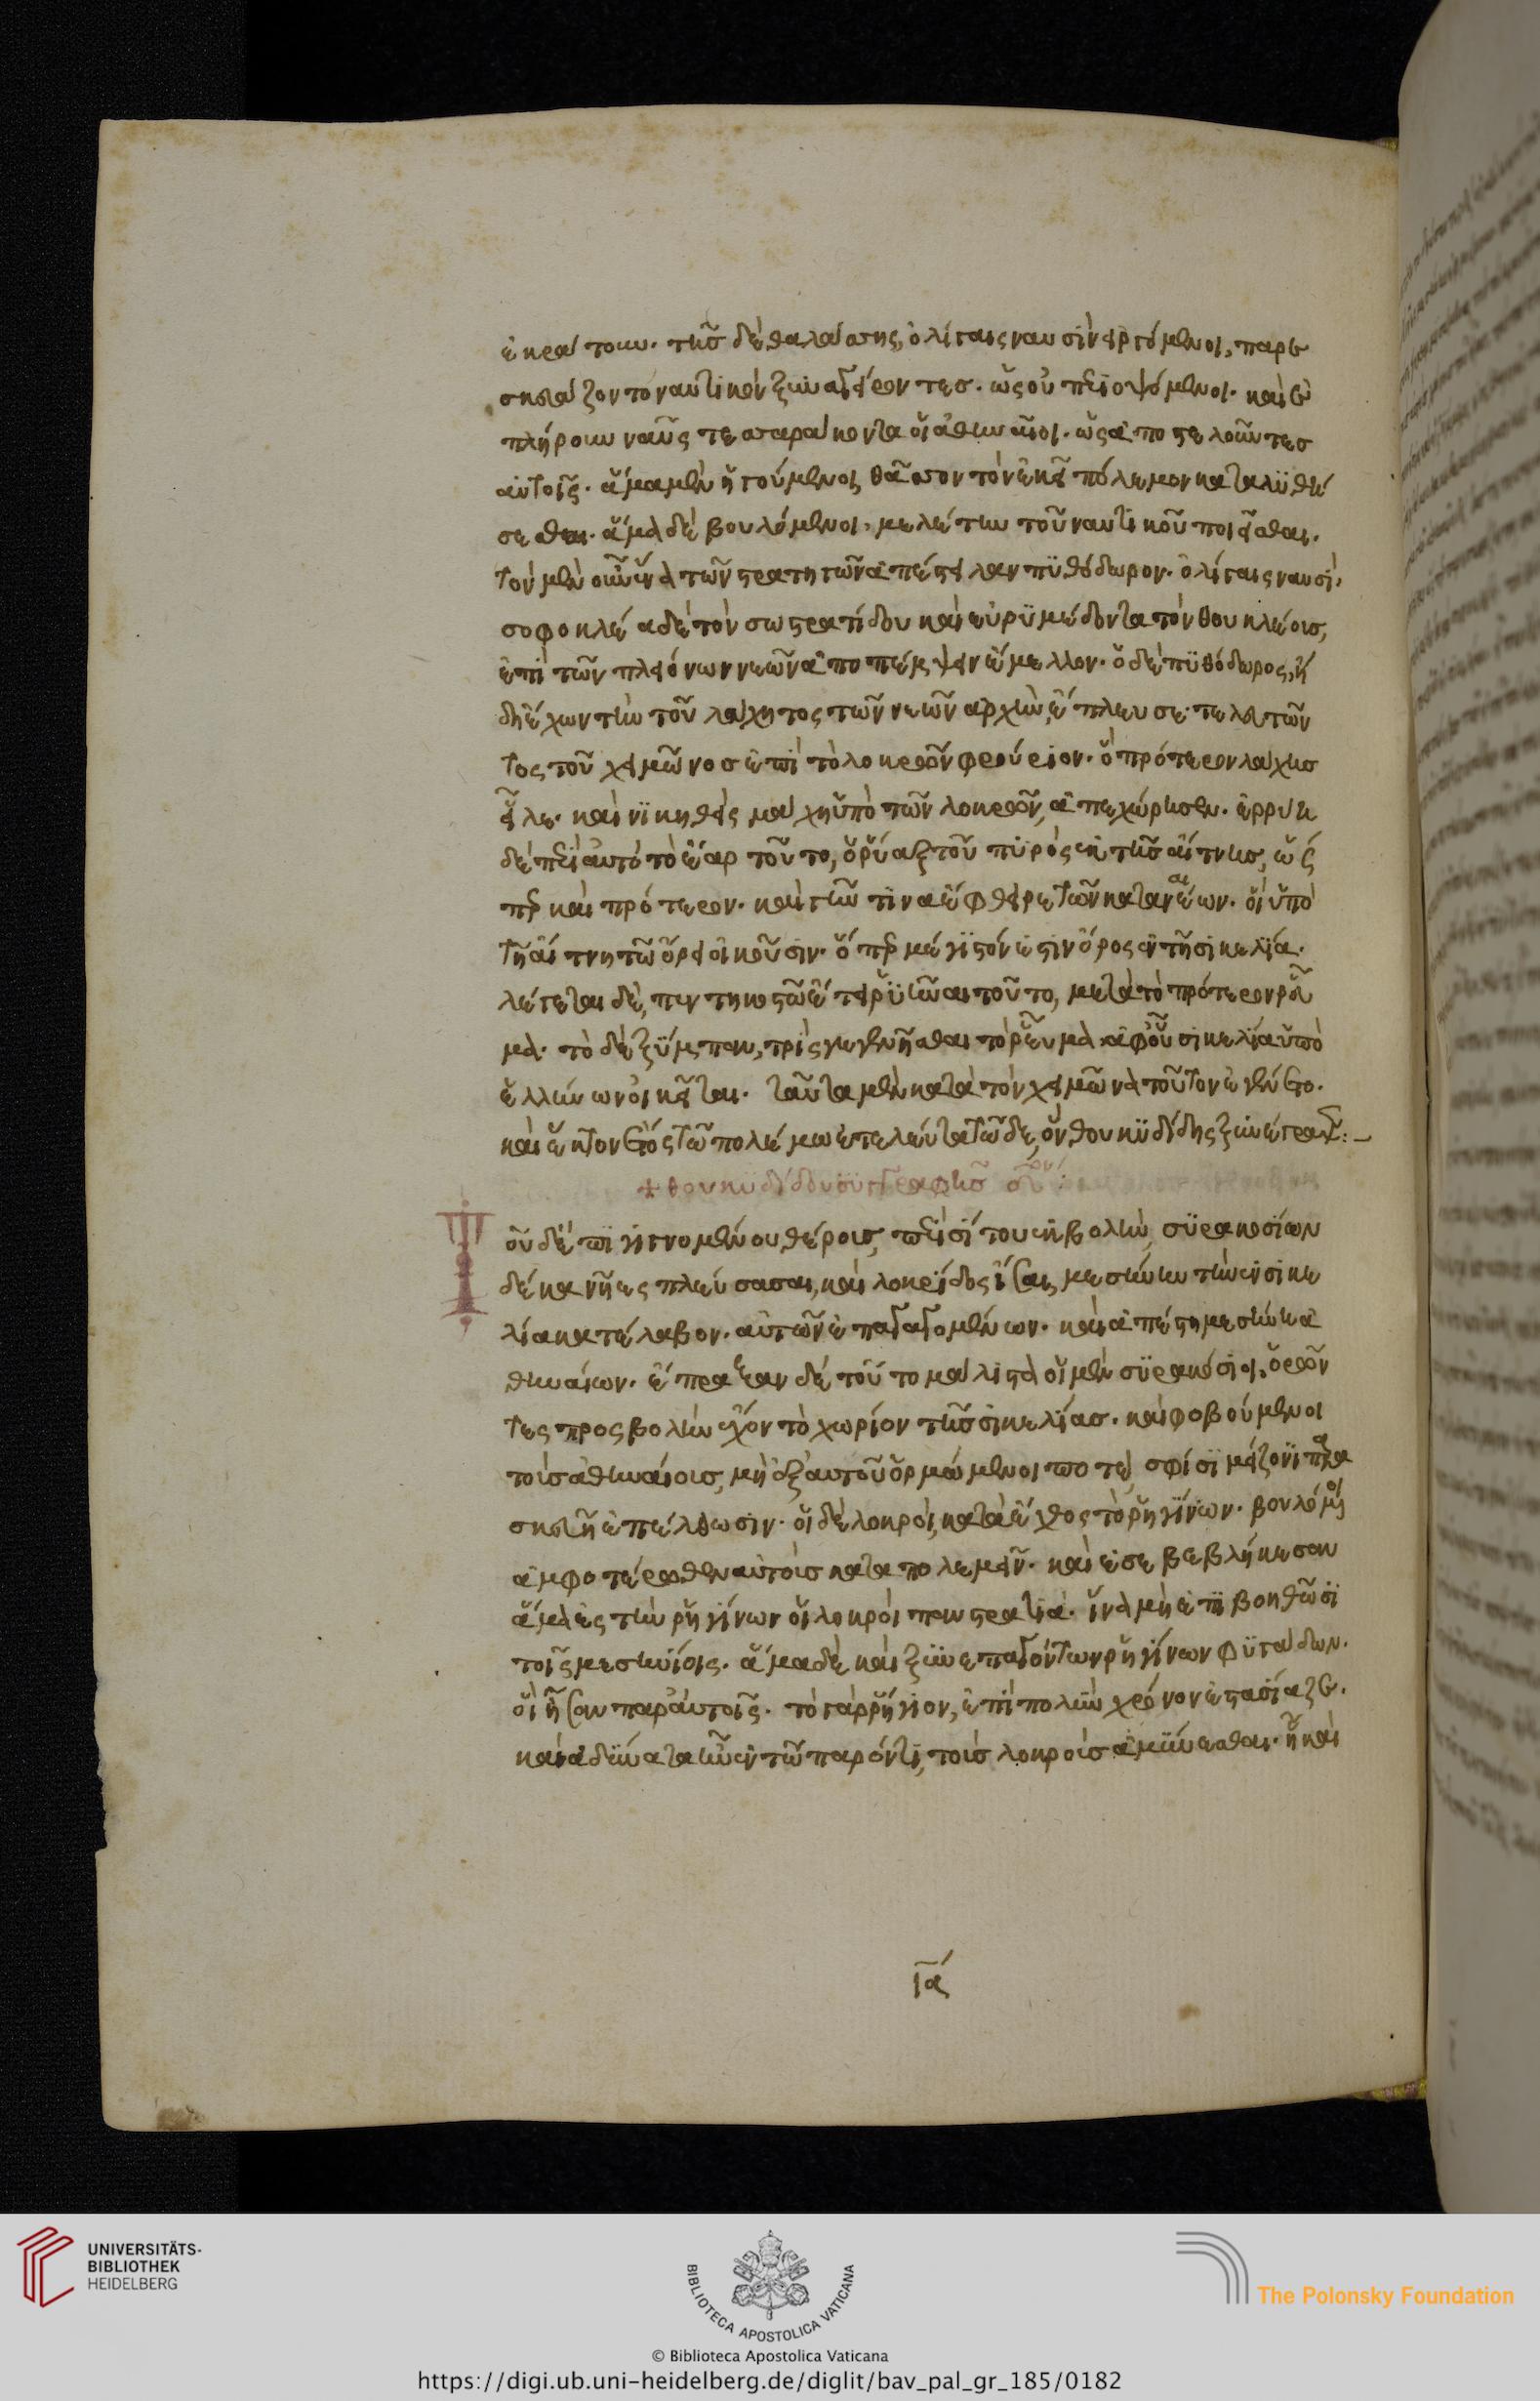 ἐκράτουν. τῆς δὲ θαλάσσης, ὀλίγαις ναυσὶν εἰργόμενοι, παρε
σκευάζοντο ναυτικὸν ξυναγείροντες. ὡς οὐ περιοψόμενοι. καὶ ἐ
πλήρουν ναῦς τεσσαράκοντα οἱ ἀθηναῖοι. ὡς ἀποστελοῦντες
αὐτοῖς. ἅμα μὲν ἡγούμενοι, θᾶσσον τὸν ἐκεῖ πόλεμον καταλυθή
σεσθαι. ἅμα δὲ βουλόμενοι, μελέτην τοῦ ναυτικοῦ ποιεῖσθαι.
τὸν μὲν οὖν ἕνα τῶν στρατηγῶν ἀπέστειλαν πϋθόδωρον. ὀλίγαις ναυσὶ,
σοφοκλέα δὲ τὸν σωστρατίδου καὶ εὐρϋμέδοντα τὸν θουκλέους,
ἐπὶ τῶν πλειόνων νεῶν ἀποπέμψειν ἔμελλον. ὁ δὲ πϋθόδωρος, ἤ
δη ἔχων τὴν τοῦ λάχητος τῶν νεῶν ἀρχὴν, ἔπλευσε τελευτῶν
τος τοῦ χειμῶνος ἐπὶ τὸ λοκρῶν φρούριον. ὃ πρότερον λάχης
εἷλε. καὶ νικηθεὶς μάχῃ ὑπὸ τῶν λοκρῶν, ἀπεχώρησεν. ἐρρύη
δὲ περὶ αὐτὸ τὸ ἔαρ τοῦτο, ὁ ῥύαξ τοῦ πυρὸς ἐκ τῆς αἴτνης, ὥς
περ καὶ πρότερον. καὶ γῆν τινα ἔφθειρε τῶν καταναίων. οἳ ὑπὸ
τῇ αἴτνῃ τῷ ὄρει οἰκοῦσιν. ὅπερ μέγιστόν ἐστιν ὄρος ἐν τῇ σικελία.
λέγεται δὲ, πεντηκοστῷ ἔτει ῥυῆναι τοῦτο, μετὰ τὸ πρότερον ῥεῦ
μα. τὸ δὲ ξύμπαν, τρὶς γεγενῆσθαι τὸ ῥεῦμα ἀφ' οὗ σικελία ὑπὸ
ἑλλήνων οἰκεῖται. ταῦτα μὲν κατὰ τὸν χειμῶνα τοῦτον ἐγένετο.
καὶ ἕκτον ἔτος τῷ πολέμῳ ἐτελεύτα τῷδε, ὃν θουκϋδίδης ξυνέγραψ:–
+ θουκυδίδου συγγραφῆς
Τοῦ δ' ἐπιγιγνομένου θέρους, περὶ σίτου ἐκβολὴν, σϋρακοσίων
δέκα νῆες πλεύσασαι, καὶ λοκρίδες ἴσαι, μεσήνην τὴν ἐν σικε
λία κατέλαβον. αὐτῶν ἐπαγαγομένων. καὶ ἀπέστη μεσήνη ἀ
θηναίων. ἔπραξαν δὲ τοῦτο μάλιστα οἱ μὲν σϋρακόσιοι, ὁρῶν
τες προσβολὴν ἔχον τὸ χωρίον τῆς σικελίας. καὶ φοβούμενοι
τοὺς ἀθηναίους, μὴ ἐξ αὐτοῦ ὁρμώμενοι ποτὲ, σφίσι μείζονι παρα
σκευῇ ἐπέλθωσιν. οἱ δὲ λοκροὶ, κατὰ ἔχθος τὸ ῥηγίνων. βουλόμενοι
ἀμφοτέρωθεν αὐτοὺς καταπολεμεῖν. καὶ ἐσεβεβλήκεσαν
ἅμα ἐς τὴν ῥηγίνων οἱ λοκροὶ πανστρατιᾷ. ἵνα μὴ ἐπιβοηθῶσι
τοῖς μεσηνίοις. ἅμα δὲ καὶ ξυνεπαγόντων ῥηγίνων φυγάδων.
οἳ ἦσαν παρ' αὐτοῖς. τὸ γὰρ ῥήγιον, ἐπὶ πολὺν χρόνον ἐστασίαζε.
καὶ ἀδύνατα ἦν ἐν τῷ παρόντι, τοὺς λοκροὺς ἀμύνεσθαι. ᾗ καὶ
ια
UNIVERSITÄTS-
BIBLIOTHEK
HEIDELBERG
BIBLIOTECA APOSTOLICA VATICANA
The Polonsky Foundation
© Biblioteca Apostolica Vaticana
https://digi.ub.uni-heidelberg.de/diglit/bav_pal_gr_185/0182